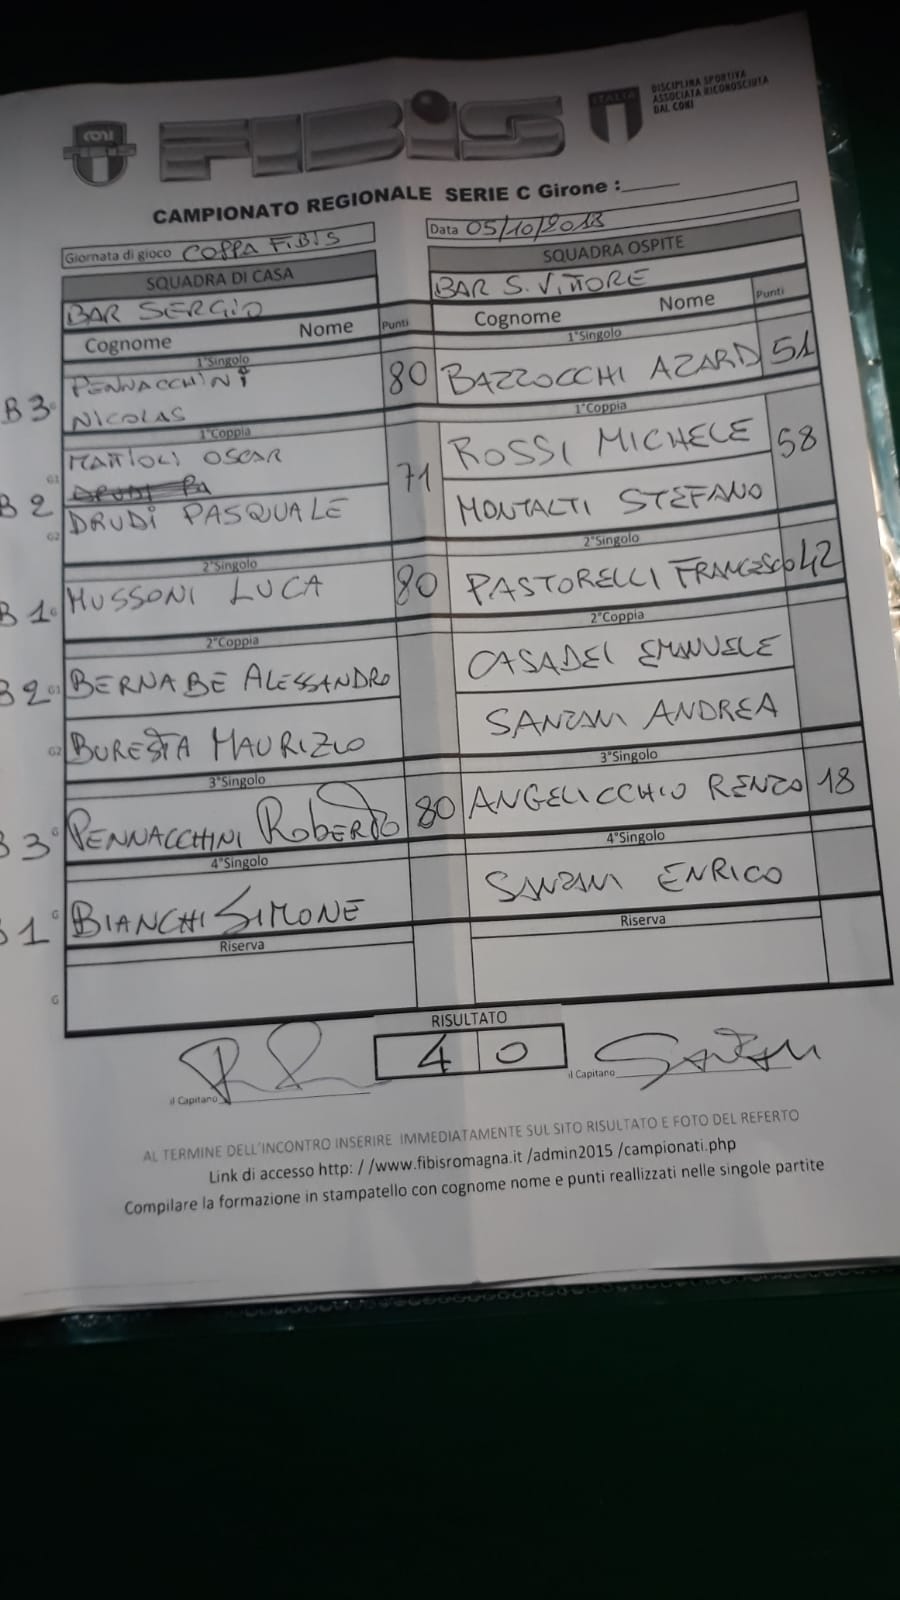 CONI
FIBiS
ITALIA
DISCIPLINA SPORTIVA
ASSOCIATA RICONOSCIUTA
DAL CONI
CAMPIONATO REGIONALE SERIE C Girone :
Giornata di gioco COPPA FIBIS
Data 05/10/2018
SQUADRA DI CASA
SQUADRA OSPITE
BAR SERGIO
BAR S. VITTORE
Cognome Nome Punti
Cognome Nome Punti
1°Singolo
1°Singolo
B 3 PENNACCHINI
NICOLAS
80
BAZZOCCHI AZARD 51
1°Coppia
1°Coppia
B 2 G1 MATTIOLI OSCAR
G2 DRUDI PASQUALE
71
ROSSI MICHELE
MONTALTI STEFANO
58
2°Singolo
2°Singolo
B 1 G MUSSONI LUCA 80
PASTORELLI FRANCESCO 42
2°Coppia
2°Coppia
B 2 G1 BERNABE ALESSANDRO
G2 BURESTA MAURIZIO
CASADEI EMANUELE
SANZANI ANDREA
3°Singolo
3°Singolo
B 3 G PENNACCHINI ROBERTO 80
ANGELICCHIO RENZO 18
4°Singolo
4°Singolo
B 1 G BIANCHI SIMONE
SANZANI ENRICO
Riserva
Riserva
G
RISULTATO
4 0
il Capitano
il Capitano
AL TERMINE DELL'INCONTRO INSERIRE IMMEDIATAMENTE SUL SITO RISULTATO E FOTO DEL REFERTO
Link di accesso http: / /www.fibisromagna.it /admin2015 /campionati.php
Compilare la formazione in stampatello con cognome nome e punti reallizzati nelle singole partite